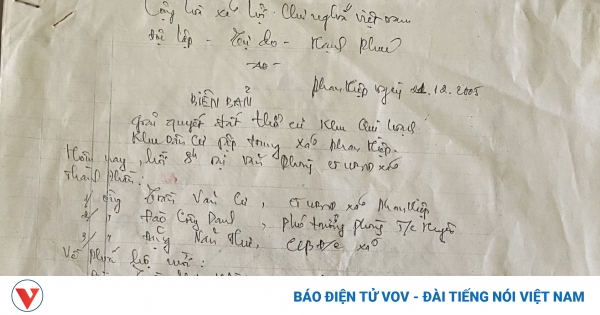 Cộng hoà xã hội chủ nghĩa việt nam
độc lập - Tự do - Hạnh phúc
Phan Hiệp ngày 21.12.2005
BIÊN BẢN
giải quyết đất thổ cư khu qui hoạch
Khu dân cư tập trung xã Phan Hiệp.
Hôm nay, hồi 8h tại văn phòng UBND xã
Thành phần:
1/ ông Trần Văn Cư, UBND xã Phan Hiệp
2/ " Đào Công Danh, phó trưởng phòng T/c Huyện
3/ " Đặng Văn Thư, xã
Về phía hộ mới:
BÁO ĐIỆN TỬ VOV - ĐÀI TIẾNG NÓI VIỆT NAM